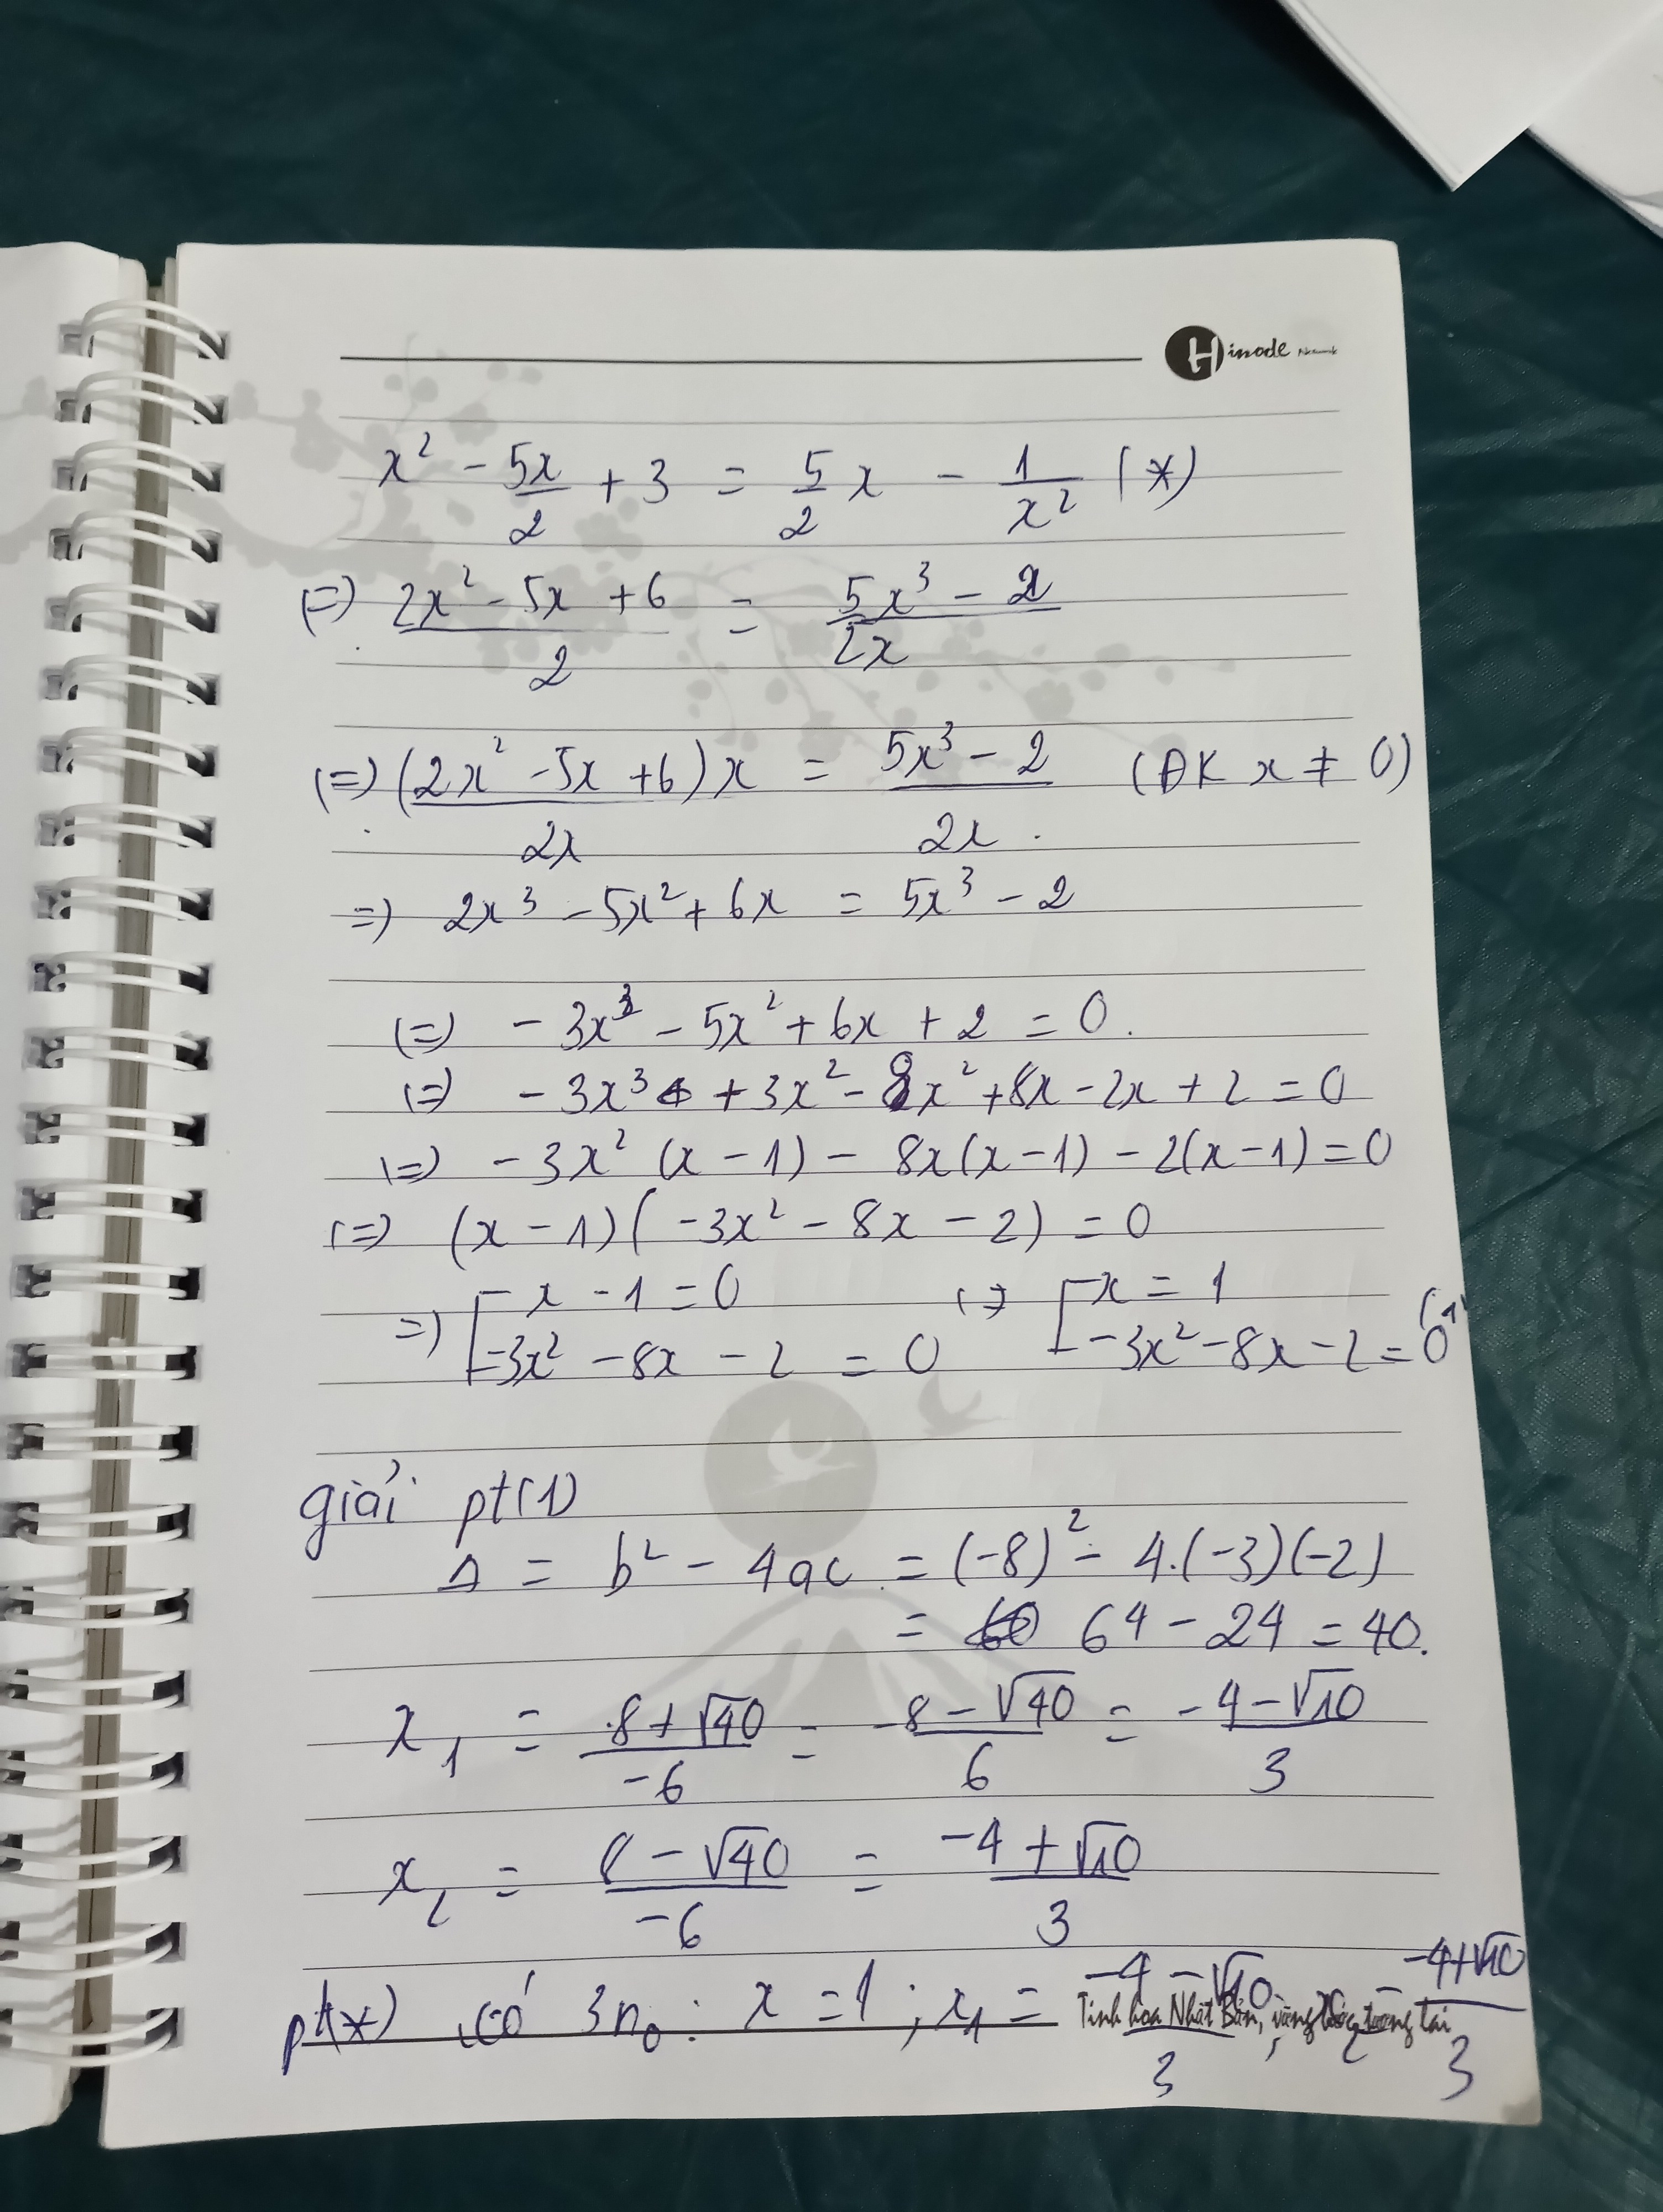 Hinode Network
x² - 5x/2 + 3 = 5/2 x - 1/x² (*)
(=) (2x² - 5x + 6)/2 = (5x³ - 2)/2x
(=) (2x² - 5x + 6)x/2x = (5x³ - 2)/2x (ĐK x ≠ 0)
=) 2x³ - 5x² + 6x = 5x³ - 2
(=) - 3x³ - 5x² + 6x + 2 = 0.
(=) - 3x³ + 3x² - 8x² + 8x - 2x + 2 = 0
(=) - 3x² (x - 1) - 8x(x - 1) - 2(x - 1) = 0
(=) (x - 1)( -3x² - 8x - 2) = 0
=) [ x - 1 = 0 (=) [ x = 1
-3x² - 8x - 2 = 0 -3x² - 8x - 2 = 0 (1)
giải pt(1)
Δ = b² - 4ac = (-8)² - 4.(-3)(-2)
= 64 - 24 = 40.
x₁ = (8 + √40)/-6 = (-8 - √40)/6 = (-4 - √10)/3
x₂ = (8 - √40)/-6 = (-4 + √10)/3
pt(*) có 3n₀ : x = 1 ; x₁ = (-4 - √10)/3 ; x₂ = (-4 + √10)/3
Tinh hoa Nhật Bản, vững bước tương lai